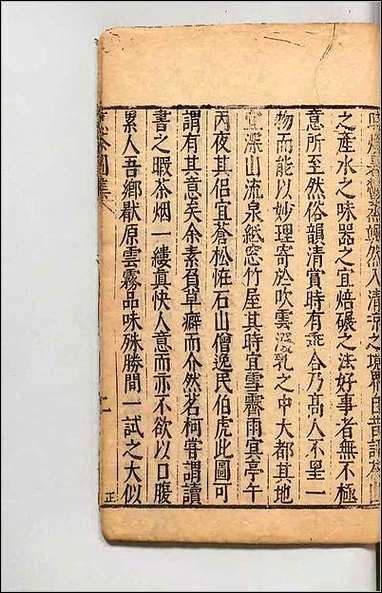 然入清流之境界自昔評
之產水之味器之宜焙碾之法好事者無不極
意所至然俗韻清賞時有乖合乃高人不呈一
物而能以妙理寄於吹雲潑乳之中大都其地
宜深山流泉紙窓竹屋其時宜雪霽雨冝亭午
丙夜其侶宜蒼松恠石山僧逸民伯虎此圖可
謂有其意矣余素負草癖而介然若柯嘗謂讀
書之暇茶烟一縷真快人意而亦不欲以口腹
累人吾鄉猒原雲霧品味殊勝間一試之大似
茶圖集
十一
正